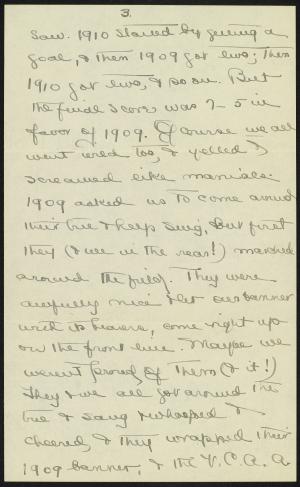 3.
saw. 1910 started by getting a
goal, & then 1909 got two; then
1910 got two, & so on. But
the final score was 7-5 in
favor of 1909. Of course we all
went wild too, & yelled &
screamed like maniacs.
1909 asked us to come around
their tree & help sing, but first
they (& we in the rear!) marched
around the field. They were
awfully nice & let our banner
with its bearers, come right up
on the front line. Maybe we
weren't proud of them (& it!)
They & we all got around the
tree & sang & whooped &
cheered, & they wrapped their
1909 banner, & the V.C.A.A.